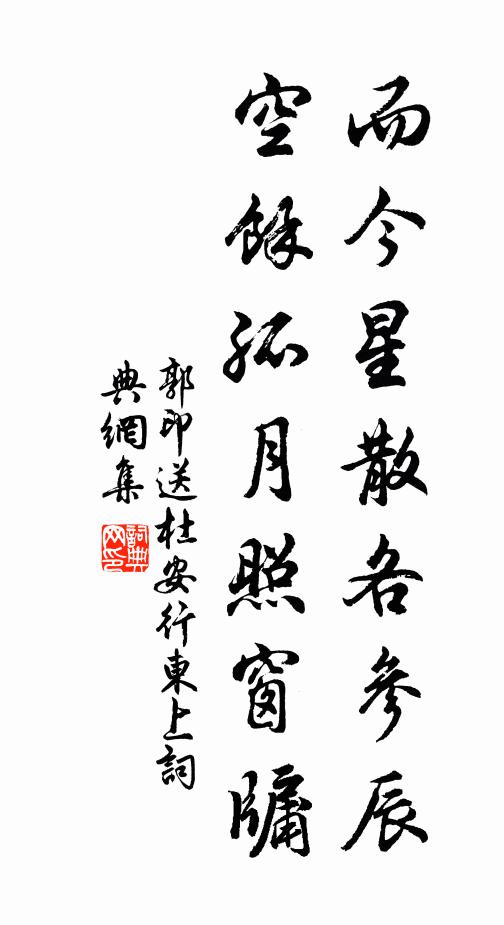 而今星散各參辰
空餘孤月照窗牖
郭印送杜安行東上詞
典網集
詞典
网印